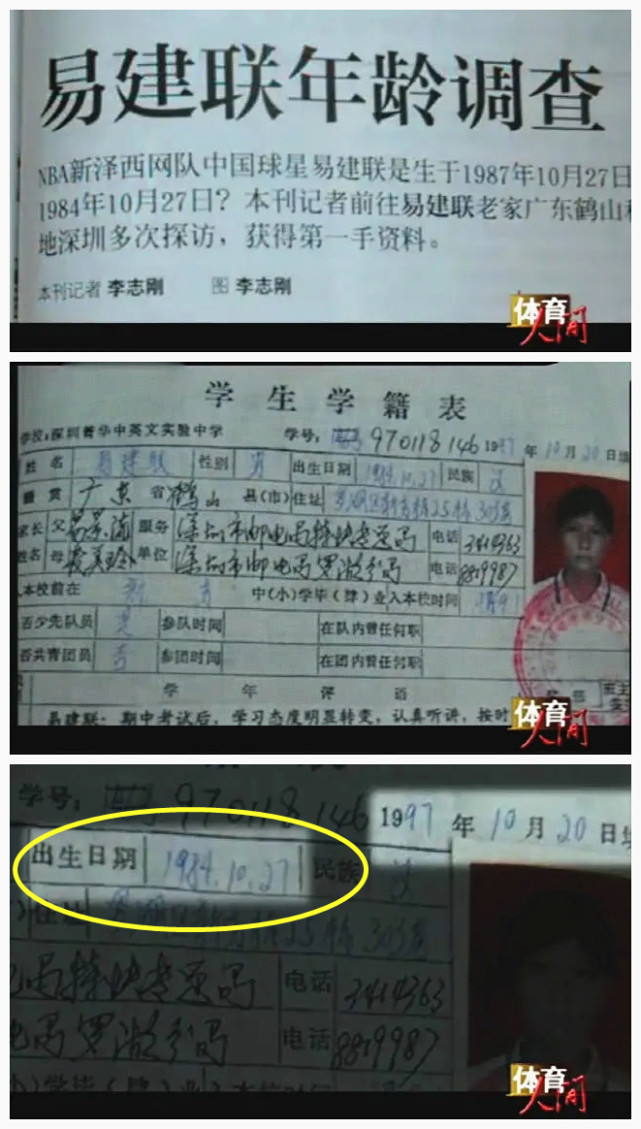 易建联年龄调查
NBA新泽西网队中国球星易建联是生于1987年10月27日
1984年10月27日？本刊记者前往易建联老家广东鹤山
地深圳多次探访，获得第一手资料。
本刊记者 李志刚 图 李志刚
体育人间
学生学籍表
学校：深圳菁华中英文实验中学 学号： 970118146 1997年10月20日填
姓名 易建联 性别 男 出生日期 1984.10.27 民族 汉
籍贯 广东省鹤山县(市) 住址 25栋
家长 父 易景流 服务 深圳市邮电局特快专递局 电话 3414363
姓名 母 单位 深圳市邮电局罗湖分局 电话 8819987
入本校前在 中(小)学毕(肄)业 入本校时间
否少先队员 参队时间 在队内曾任何职
否共青团员 否 参团时间 在团内曾任何职
学年评语
易建联：期中考试后，学习态度明显转变，认真听讲，按时
体育人间
学号： 970118146 1997年10月20日填
出生日期 1984.10.27 民族 汉
住址 25栋
局特快专递局 电话 3414363
电局罗湖分局 电话 8819987
小)学毕(肄)业 入本校时间
体育人间